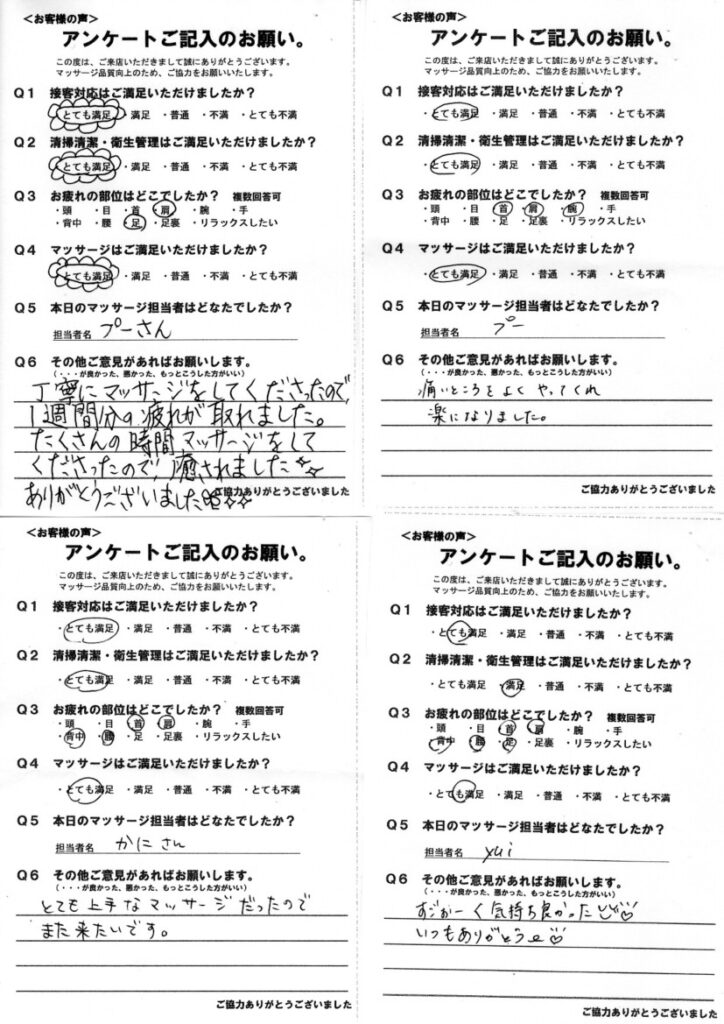 ＜お客様の声＞
アンケートご記入のお願い。
この度は、ご来店いただきまして誠にありがとうございます。
マッサージ品質向上のため、ご協力をお願いいたします。
Q1 接客対応はご満足いただけましたか？
・とても満足 ・満足 ・普通 ・不満 ・とても不満
Q2 清掃清潔・衛生管理はご満足いただけましたか？
・とても満足 ・満足 ・普通 ・不満 ・とても不満
Q3 お疲れの部位はどこでしたか？ 複数回答可
・頭 ・目 ・首 ・肩 ・腕 ・手
・背中 ・腰 ・足 ・足裏 ・リラックスしたい
Q4 マッサージはご満足いただけましたか？
・とても満足 ・満足 ・普通 ・不満 ・とても不満
Q5 本日のマッサージ担当者はどなたでしたか？
担当者名 プーさん
Q6 その他ご意見があればお願いします。
（・・・が良かった、悪かった、もっとこうした方がいい）
丁寧にマッサージをしてくださったので、
1週間分の疲れが取れました。
たくさんの時間マッサージをして
くださったので、癒されました☆☆
ありがとうございました☆☆
ご協力ありがとうございました
＜お客様の声＞
アンケートご記入のお願い。
この度は、ご来店いただきまして誠にありがとうございます。
マッサージ品質向上のため、ご協力をお願いいたします。
Q1 接客対応はご満足いただけましたか？
・とても満足 ・満足 ・普通 ・不満 ・とても不満
Q2 清掃清潔・衛生管理はご満足いただけましたか？
・とても満足 ・満足 ・普通 ・不満 ・とても不満
Q3 お疲れの部位はどこでしたか？ 複数回答可
・頭 ・目 ・首 ・肩 ・腕 ・手
・背中 ・腰 ・足 ・足裏 ・リラックスしたい
Q4 マッサージはご満足いただけましたか？
・とても満足 ・満足 ・普通 ・不満 ・とても不満
Q5 本日のマッサージ担当者はどなたでしたか？
担当者名 プー
Q6 その他ご意見があればお願いします。
（・・・が良かった、悪かった、もっとこうした方がいい）
痛いところをよくやってくれ
楽になりました。
ご協力ありがとうございました
＜お客様の声＞
アンケートご記入のお願い。
この度は、ご来店いただきまして誠にありがとうございます。
マッサージ品質向上のため、ご協力をお願いいたします。
Q1 接客対応はご満足いただけましたか？
・とても満足 ・満足 ・普通 ・不満 ・とても不満
Q2 清掃清潔・衛生管理はご満足いただけましたか？
・とても満足 ・満足 ・普通 ・不満 ・とても不満
Q3 お疲れの部位はどこでしたか？ 複数回答可
・頭 ・目 ・首 ・肩 ・腕 ・手
・背中 ・腰 ・足 ・足裏 ・リラックスしたい
Q4 マッサージはご満足いただけましたか？
・とても満足 ・満足 ・普通 ・不満 ・とても不満
Q5 本日のマッサージ担当者はどなたでしたか？
担当者名 かにさん
Q6 その他ご意見があればお願いします。
（・・・が良かった、悪かった、もっとこうした方がいい）
とても上手なマッサージだったので
また来たいです。
ご協力ありがとうございました
＜お客様の声＞
アンケートご記入のお願い。
この度は、ご来店いただきまして誠にありがとうございます。
マッサージ品質向上のため、ご協力をお願いいたします。
Q1 接客対応はご満足いただけましたか？
・とても満足 ・満足 ・普通 ・不満 ・とても不満
Q2 清掃清潔・衛生管理はご満足いただけましたか？
・とても満足 ・満足 ・普通 ・不満 ・とても不満
Q3 お疲れの部位はどこでしたか？ 複数回答可
・頭 ・目 ・首 ・肩 ・腕 ・手
・背中 ・腰 ・足 ・足裏 ・リラックスしたい
Q4 マッサージはご満足いただけましたか？
・とても満足 ・満足 ・普通 ・不満 ・とても不満
Q5 本日のマッサージ担当者はどなたでしたか？
担当者名 yui
Q6 その他ご意見があればお願いします。
（・・・が良かった、悪かった、もっとこうした方がいい）
すごぉーく気持ち良かった♡
いつもありがとう♡
ご協力ありがとうございました